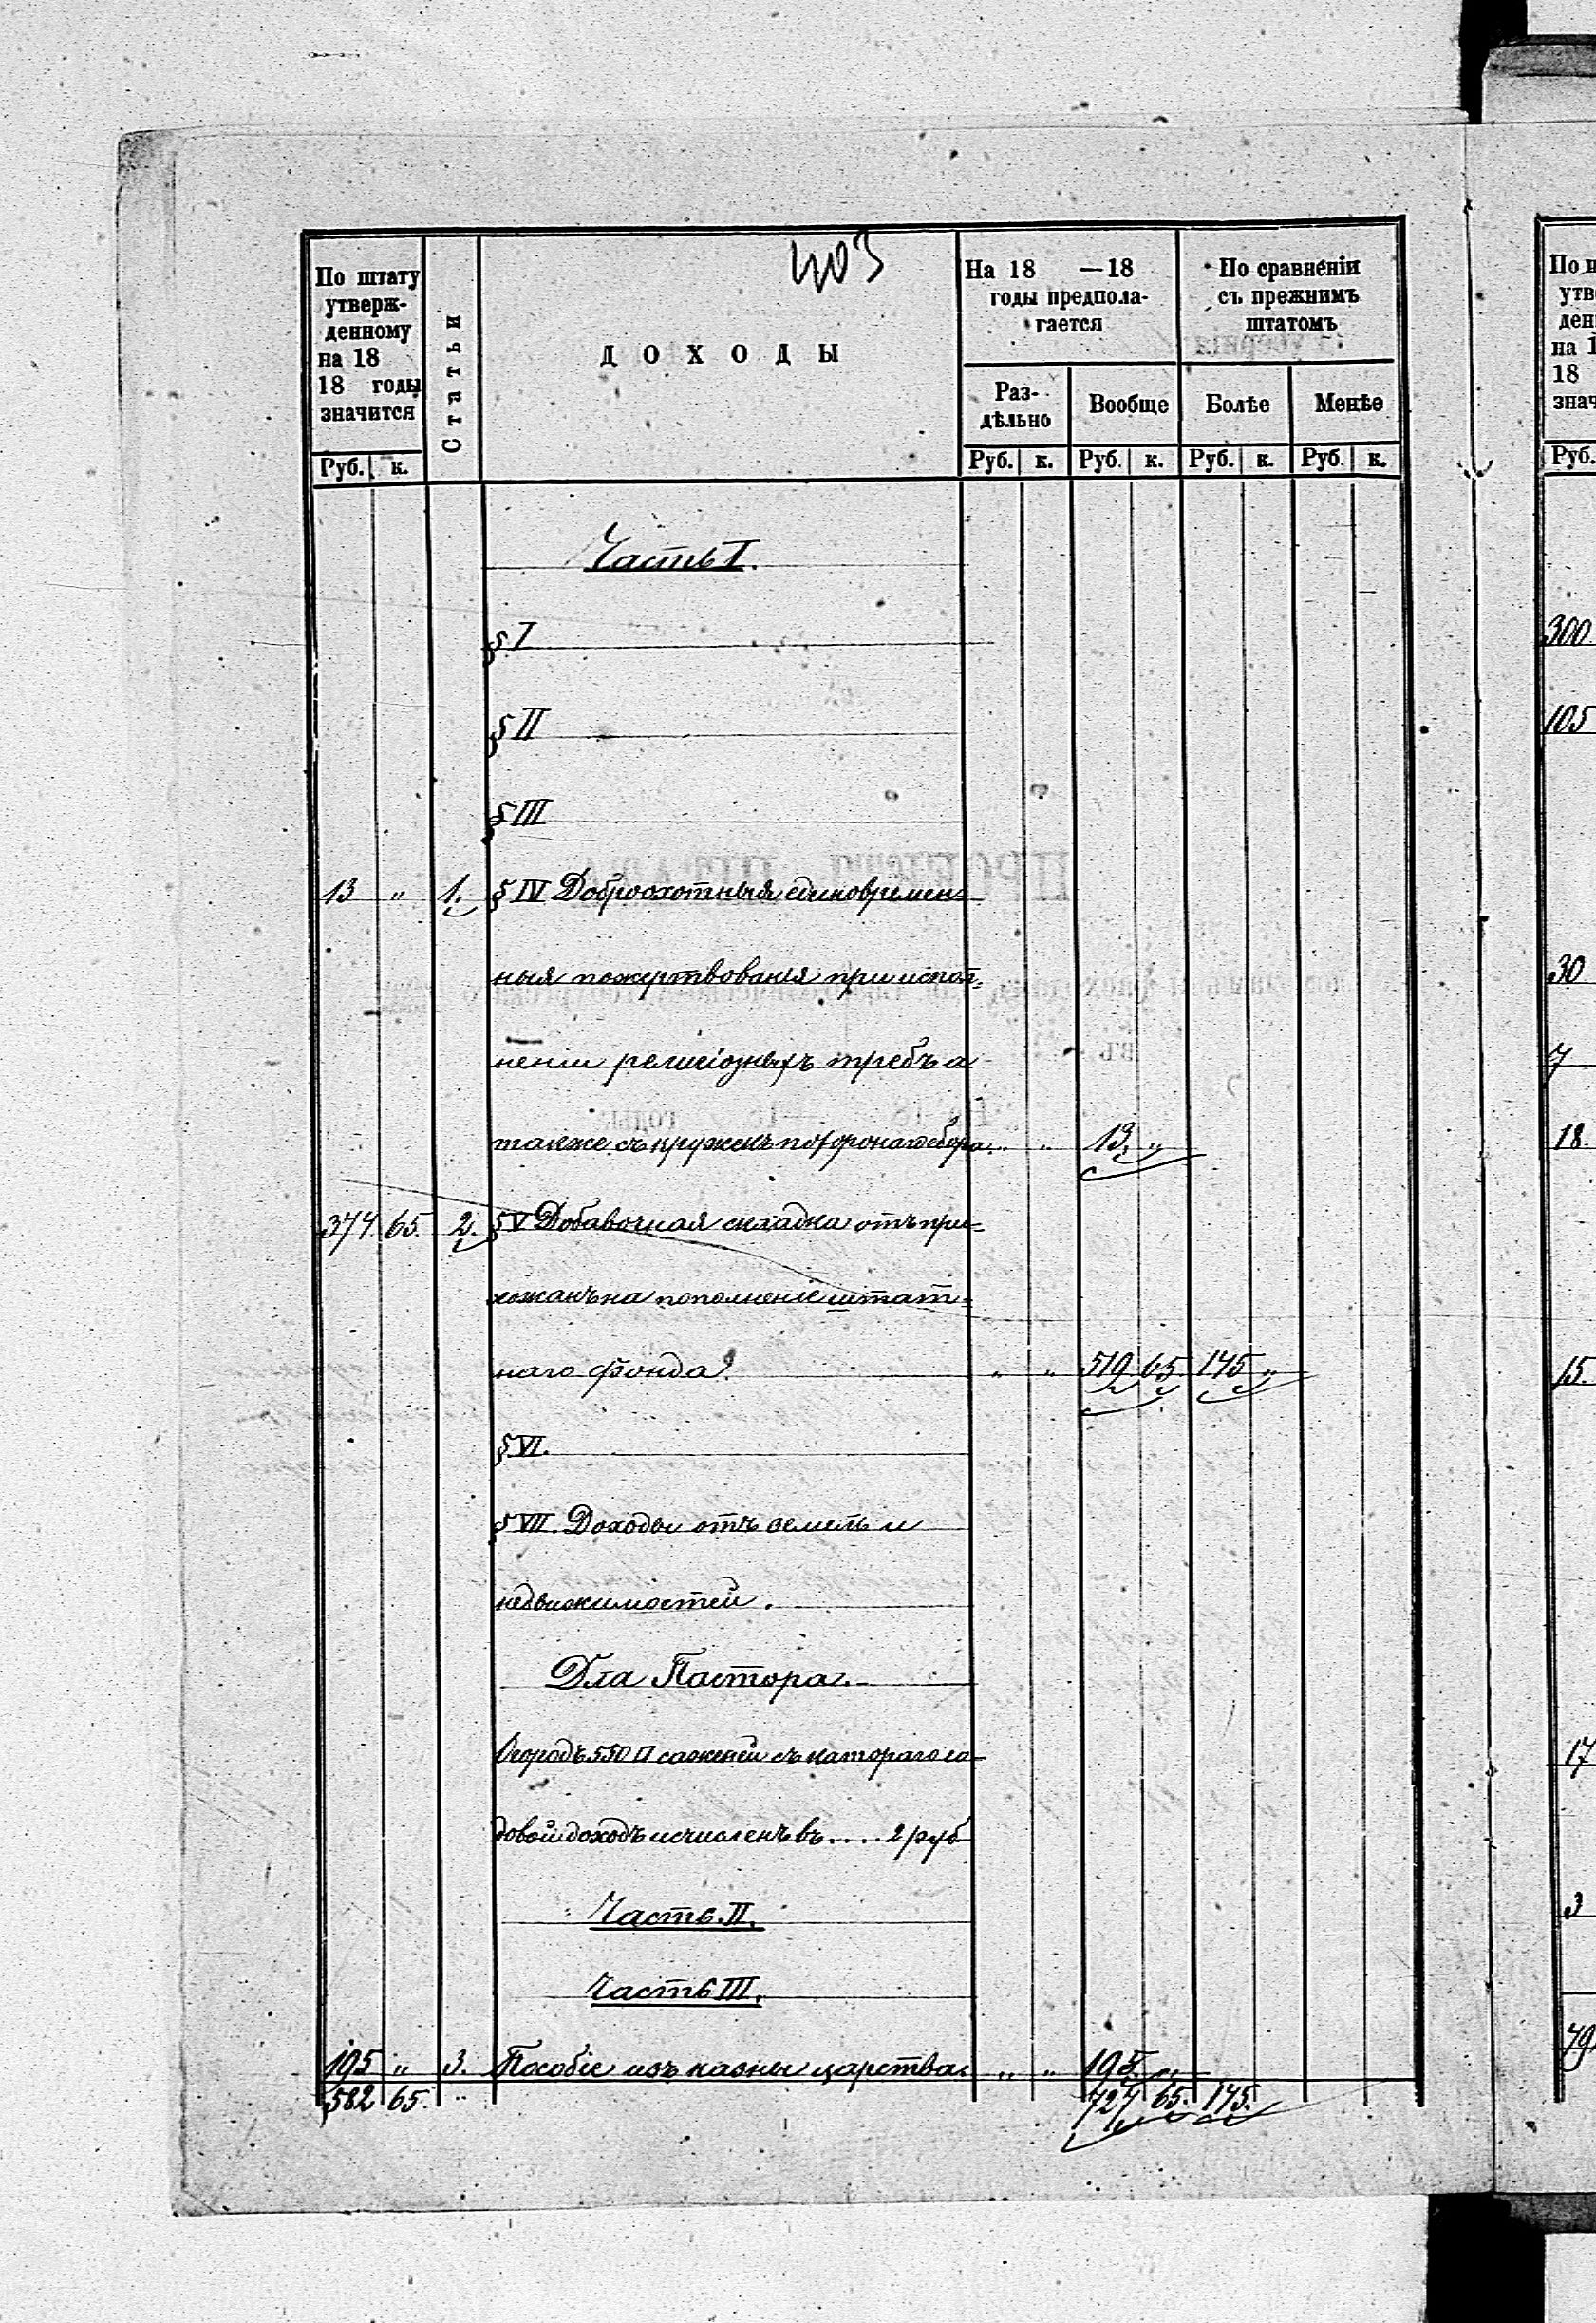 403
По штату утверж- денному на 18 18 годы значится
Статьи
ДОХОДЫ
На 18 —18 годы предпола- гается
По сравненіи съ прежнимъ штатомъ
Раз- дѣльно
Вообще
Болѣе
Менѣе
Руб. к. Руб. к. Руб. к. Руб. к. Руб. к.
Часть I.
§ I
§ II
§ III
13 „ 1. § IV Доброохотныя единовремен=
ныя пожертвованія при испол=
неніи религіозныхъ требъ а
также съ кружекъ похорон. сбора. „ „ 13. „
374 65. 2. § V Добавочная складка отъ при=
хожанъ на пополненіе штат=
наго фонда. „ „ 519 65. 145 „
§ VI.
§ VII. Доходы отъ земель и
недвижимостей.
Для Пастора.
Огородъ 550 □ саженей съ котораго го-
довой доходъ исчисленъ въ.... 2 руб
Часть. II.
Часть III.
195 „ 3. Пособіе изъ казны царства. „ „ 195. „
582 65. „ 727 65. 145.
По
утв
ден
на 1
18
знач
Руб.
300.
105
30
7
18.
15.
17
3
79